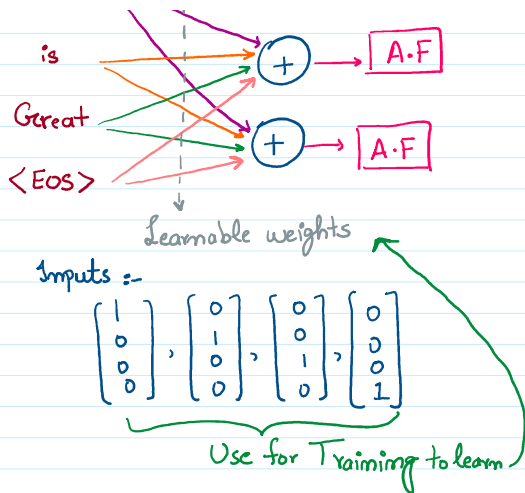 is
+
A.F
Great
+
A.F
<EOS>
Learnable weights
Inputs :-
[1 0 0 0], [0 1 0 0], [0 0 1 0], [0 0 0 1]
Use for Training to learn